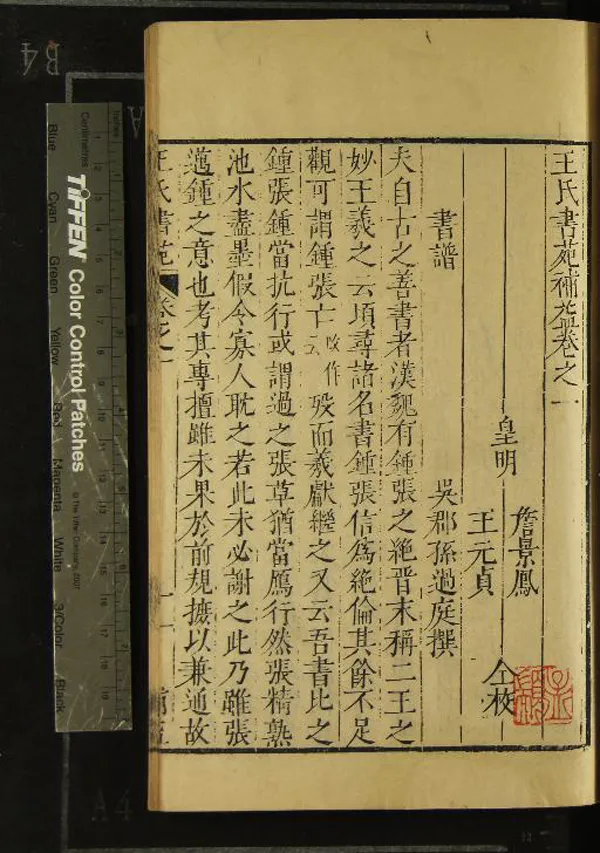 王氏書苑補益卷之一
皇明
詹景鳳
王元貞
仝校
書譜
吳郡孫過庭撰
夫自古之善書者漢魏有鍾張之絶晋末稱二王之
妙王羲之云頃尋諸名書鍾張信爲絶倫其餘不足
觀可謂鍾張亡云改作歿而羲獻繼之又云吾書比之
鍾張鍾當抗行或謂過之張草猶當鴈行然張精熟
池水盡墨假令寡人耽之若此未必謝之此乃雖張
邁鍾之意也考其專擅雖未果於前規摭以兼通故
王氏書苑 卷之一
一
Centimetres
Inches
TIFFEN Color Control Patches
© The Tiffen Company, 2007
Blue
Cyan
Green
Yellow
Red
Magenta
White
3/Color
Black
B4
A
A4